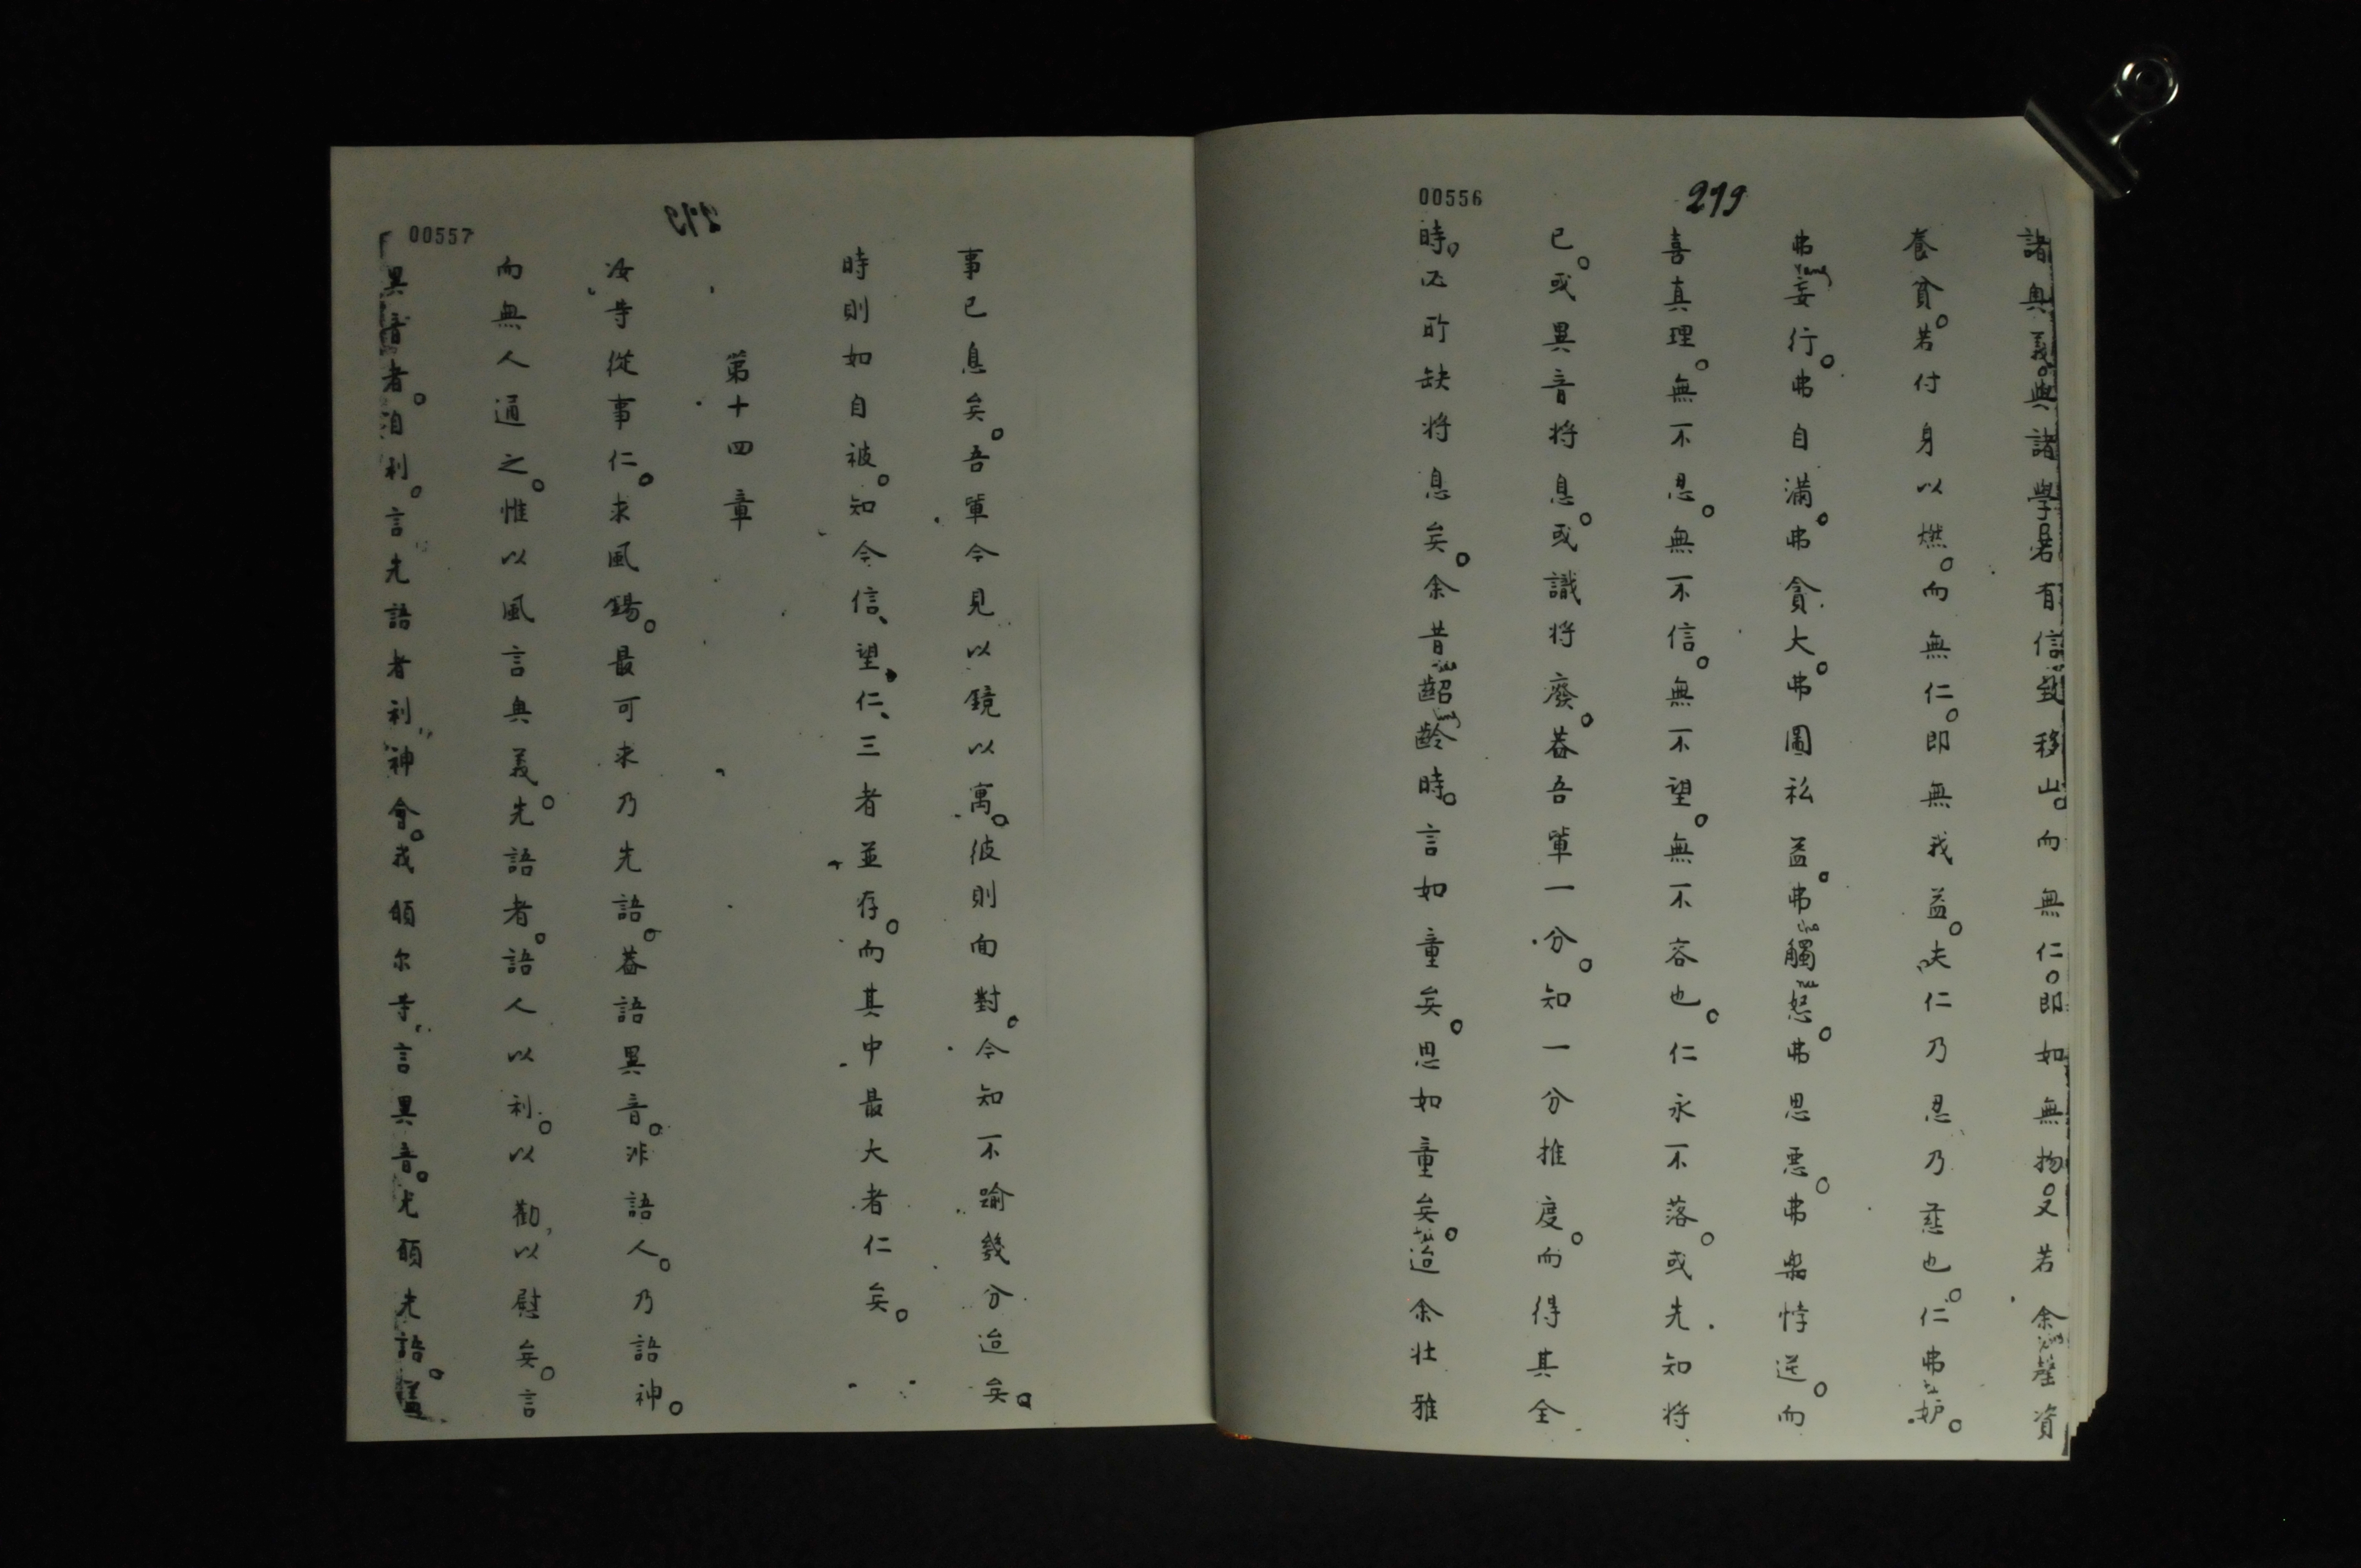 00556
219
諸奧義。與諸學。若有信致移山。而無仁。即如無物。又若余罄資
養貧。若付身以燃。而無仁。即無我益。夫仁乃忍乃慈也。仁弗妒。
弗妄行。弗自滿。弗貪大。弗圖私益。弗觸怒。弗思惡。弗樂悖逆。而
喜真理。無不忍。無不信。無不望。無不容也。仁永不落。或先知將
已。或異音將息。或識將廢。蓋吾輩一分。知一分推度。而得其全
時。所缺將息矣。余昔齠齡時。言如童矣。思如童矣。迨余壯雅
00557
219
事已息矣。吾輩今見以鏡以寓。彼則面對。今知不踰幾分迨矣。
時則如自被。知今信、望、仁、三者並存。而其中最大者仁矣。
第十四章
汝等從事仁。求風錫。最可求乃先語。蓋語異音。非語人。乃語神。
而無人通之。惟以風言奧義。先語者。語人以利。以勸、以慰矣。言
異音者。自利。言先語者利神會。我願尔等言異音。尤願先語。蓋